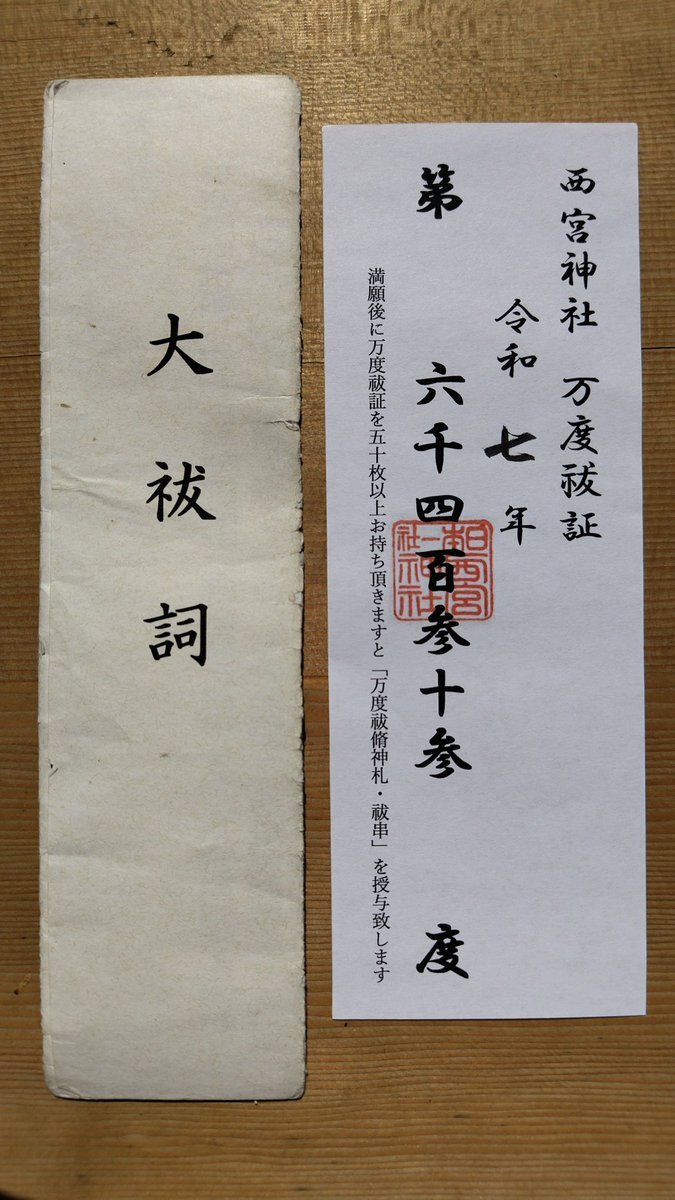 西宮神社 万度祓証
令和七年
第 六千四百参十参 度
満願後に万度祓証を五十枚以上お持ち頂きますと「万度祓脩神札・祓串」を授与致します
大祓詞